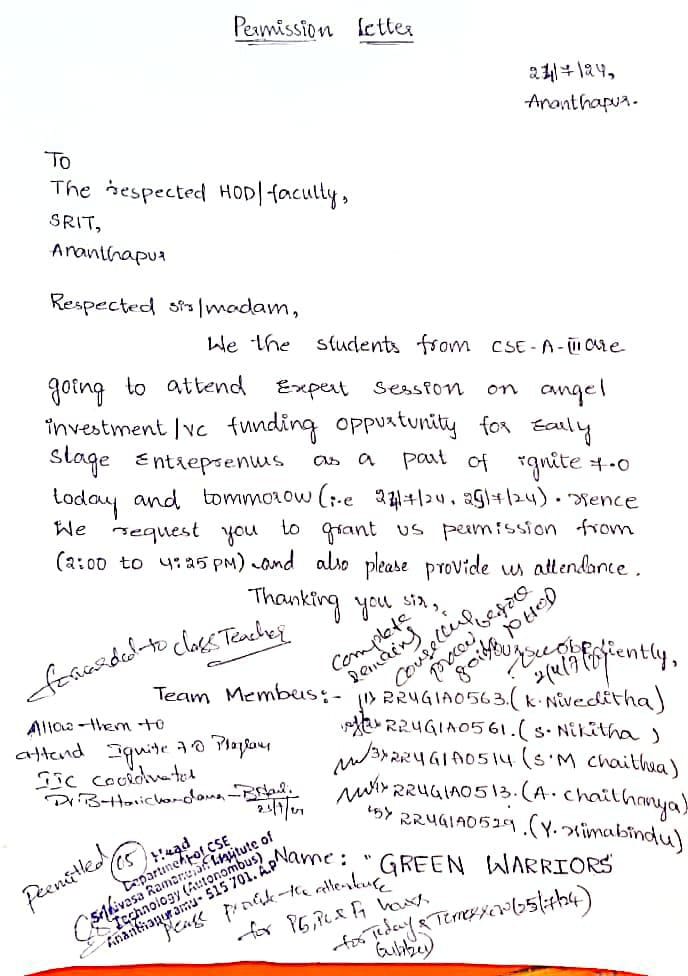 Permission letter
24/7/24,
Ananthapur.
To
The respected HOD/faculty,
SRIT,
Ananthapur
Respected sir/madam,
We the students from CSE-A-III are
going to attend Expert session on angel
investment/vc funding oppurtunity for Early
Stage Entreprenurs as a part of ignite 7.0
today and tommorow (i.e 24/7/24, 25/7/24). Hence
We request you to grant us permission from
(2:00 to 4:25 PM) and also please provide us attendance.
Thanking you sir,
forwarded to class Teacher
Complete
remaining
before
to HOD
obediently,
Team Members:-
(1) 224G1A0563. (K. Niveditha)
224G1A0561. (S. Nikitha)
(3) 224G1A0514. (S.M Chaithra)
224G1A0513. (A. Chaithanya)
(5) 224G1A0529. (Y. Himabindu)
Allow them to
attend Ignite 7.0 Program
IIC Coordinator
Permitted (05)
Head
Department of CSE
Srinivasa Ramanujan Institute of
Technology (Autonombus)
Ananthapuramu - 515 701. A.P
Name: "GREEN WARRIORS"
please provide the attendance
for P5, P6 & P7 hours
for Today &